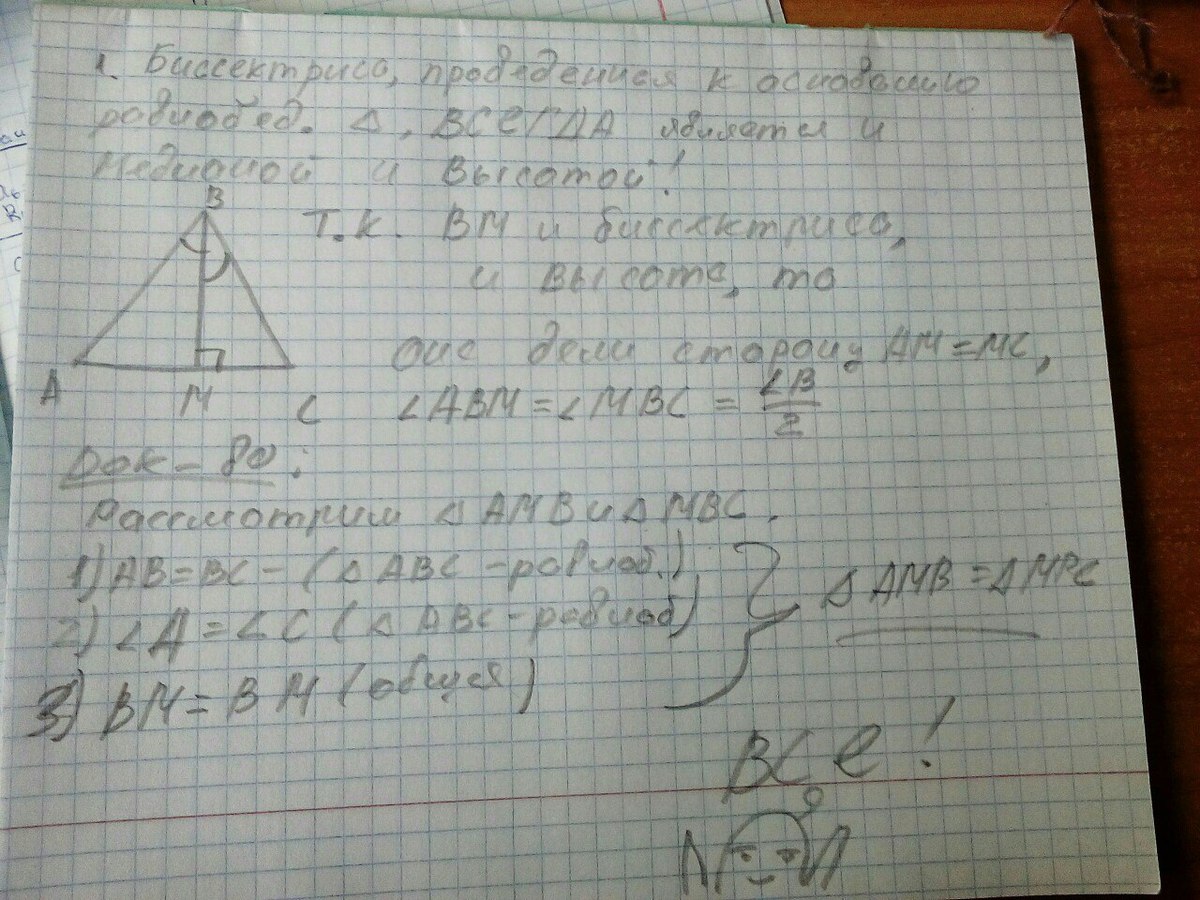 1. Биссектриса, проведенная к основанию
равнобед. Δ, ВСЕГДА является и
медианой и высотой!
B
Т.к. BM и биссектриса,
и высота, то
она дели сторону AM = MC,
A M C
∠ABM = ∠MBC = ∠B/2
Док-во:
Рассмотрим Δ AMB и Δ MBC.
1) AB = BC - (Δ ABC - равноб.)
2) ∠A = ∠C (Δ ABC - равноб)
Δ AMB = Δ MBC
3) BM = BM (общая)
ВСе!